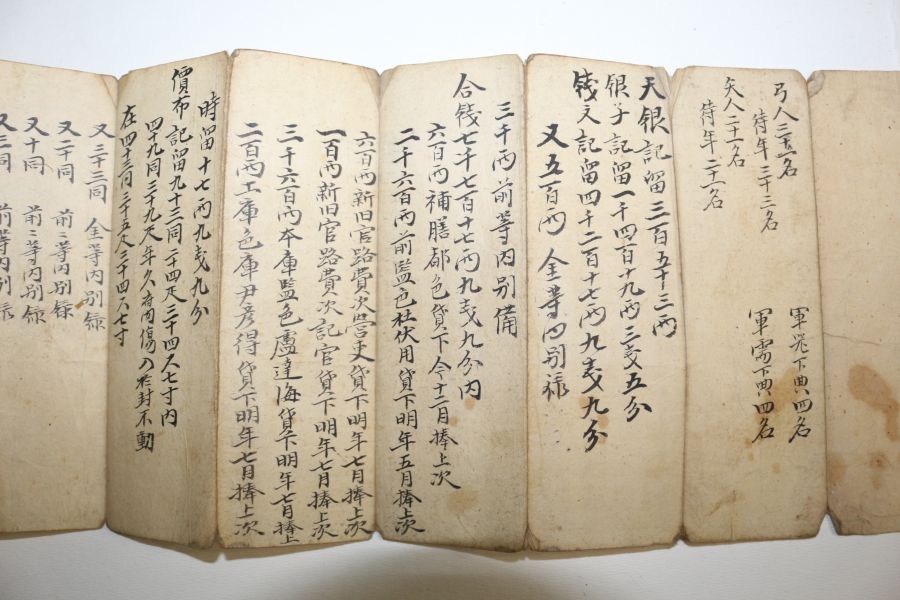 弓人三十三名
待年三十三名
軍器下典四名
矢人二十一名
待年二十一名
軍需下典四名
天银記留三百五十三両
银子記留一千四百十九両三戔五分
錢文記留四千二百十七両九戔九分
又五百両 金等内别录
三千両前等内别備
合錢七千七百十七両九戔九分内
六百両補膳都色貸下今十二月捧上次
二千六百両前監色社伏用貸下明年五月捧上次
六百両新旧官路費次营吏貸下明年七月捧上次
一百両新旧官路費次記官貸下明年七月捧上次
三千六百両本庫監色盧達海貸下明年七月捧上
二百両工庫色庫尹彦得貸下明年七月捧上次
時留十七両九戔九分
價布記留九十三同二十四疋二十四尺七寸内
四十九同三十九疋年久痛傷乙仍于封不動
在四十三同三十五疋二十四尺七寸
又三十三同 金等内别錄
又二十同 前二等内别錄
又十同 前二等内别錄
又三同 前等内别錄